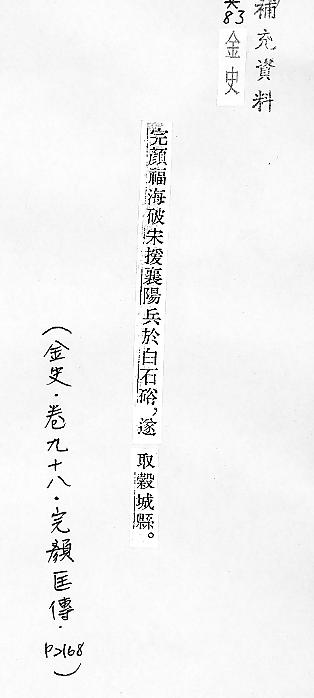 補充資料
83
金史
完顏福海破宋援襄陽兵於白石峪，遂取穀城縣。
（金史·卷九十八·完顏匡傳·P2168）